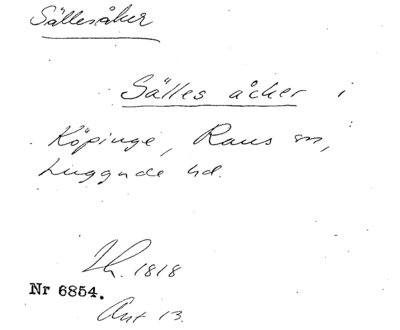 Sällesåker
Sälles åcker i
Köpinge, Raus sn,
Luggude hd.
1818
Nr 6854.
Ant 13.